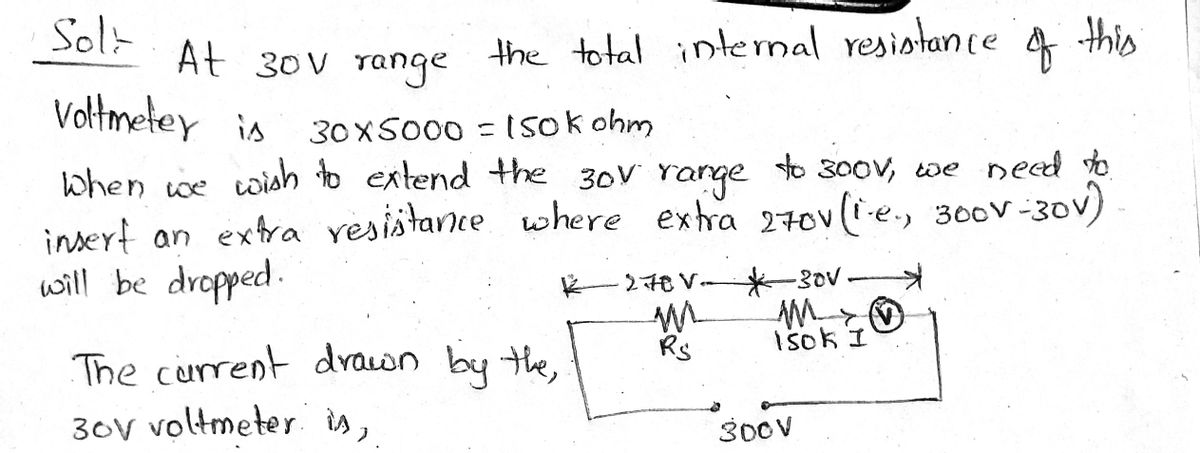 Sol:-
At 30V range the total internal resistance of this
Voltmeter is 30x5000 = 150k ohm
When we wish to extend the 30V range to 300V, we need to
insert an extra resistance where extra 270V (i.e., 300V-30V)
will be dropped.
270V 30V
V
Rs 150k I
The current drawn by the,
30V voltmeter is,
300V